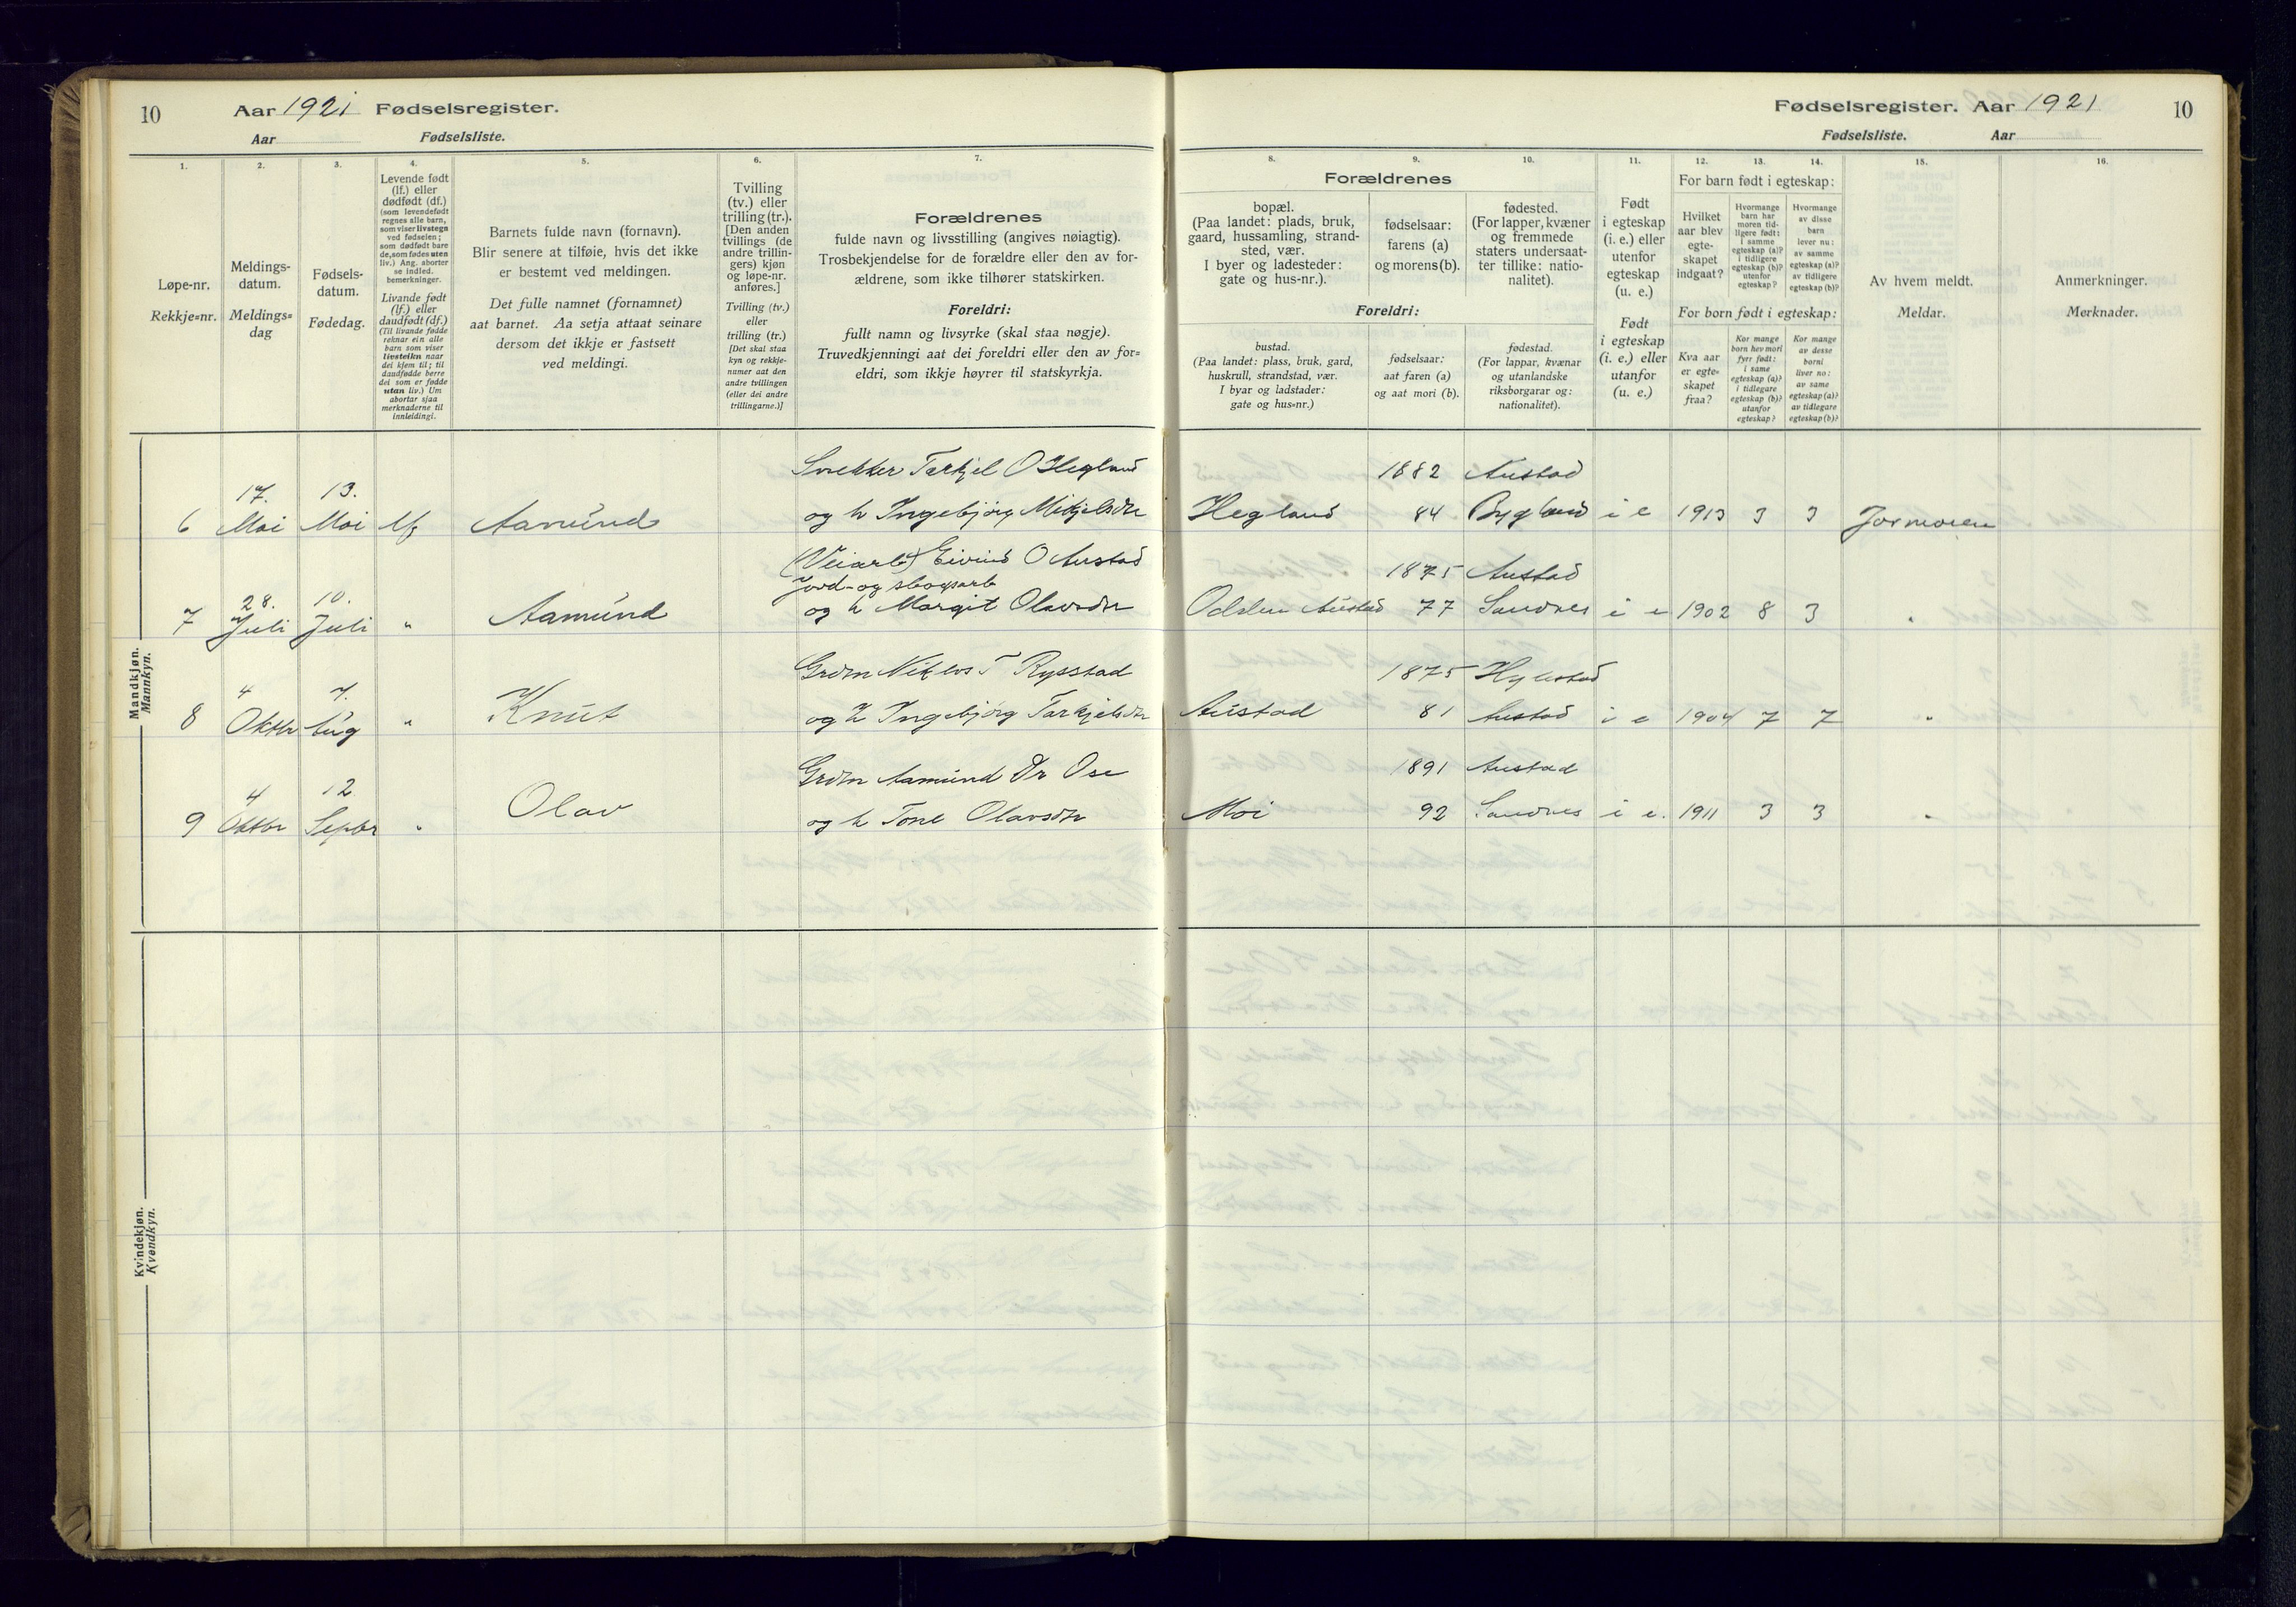 10 Aar 1921 Fødselsregister.
Aar Fødselsliste.
Fødselsregister. Aar 1921 10
Fødselsliste. Aar
1.
Løpe-nr.
Rekkje=nr.
2.
Meldings-
datum.
Meldings=
dag
3.
Fødsels-
datum.
Fødedag.
4.
Levende født
(lf.) eller
dødfødt (df.)
(som levendefødt
regnes alle barn,
som viser livstegn
ved fødselen;
som dødfødt bare
de, som fødes uten
liv.) Ang. aborter
se indled.
bemerkninger.
Livande født
(lf.) eller
daudfødt (df.)
(Til livande fødde
reknar ein alle
barn som viser
livsteikn naar
dei kjem til; til
daudfødde berre
dei som er fødde
utan liv.) Um
abortar sjaa
merknaderne til
innleidingi.
5.
Barnets fulde navn (fornavn).
Blir senere at tilføie, hvis det ikke
er bestemt ved meldingen.
Det fulle namnet (fornamnet)
aat barnet. Aa setja attaat seinare
dersom det ikkje er fastsett
ved meldingi.
6.
Tvilling
(tv.) eller
trilling (tr.).
[Den anden
tvillings (de
andre trillin-
gers) kjøn
og løpe-nr.
anføres.]
Tvilling (tv.)
eller
trilling (tr.)
[Det skal staa
kyn og rekkje-
numer aat den
andre tvillingen
(eller dei andre
trillingarne.)]
7.
Forældrenes
fulde navn og livsstilling (angives nøiagtig).
Trosbekjendelse for de forældre eller den av for-
ældrene, som ikke tilhører statskirken.
Foreldri:
fullt namn og livsyrke (skal staa nøgje).
Truvedkjenningi aat dei foreldri eller den av for=
eldri, som ikkje høyrer til statskyrkja.
8. 9. 10.
Forældrenes
bopæl.
(Paa landet: plads, bruk,
gaard, hussamling, strand-
sted, vær.
I byer og ladesteder:
gate og hus-nr.).
fødselsaar:
farens (a)
og morens (b).
fødested.
(For lapper, kvæner
og fremmede
staters undersaat-
ter tillike: natio-
nalitet).
Foreldri:
bustad.
(Paa landet: plass, bruk, gard,
huskrull, strandstad, vær.
I byar og ladstader:
gate og hus=nr.)
fødselsaar:
aat faren (a)
og aat mori (b).
fødestad.
(For lappar, kvænar
og utanlandske
riksborgarar og:
nationalitet).
11.
Født
i egteskap
(i. e.) eller
utenfor
egteskap
(u. e.)
Født
i egteskap
(i. e.) eller
utanfor
(u. e.)
12. 13. 14.
For barn født i egteskap:
Hvilket
aar blev
egte-
skapet
indgaat?
Hvormange
barn har
moren tid-
ligere født:
i samme
egteskap (a)?
i tidligere
egteskap (b)?
utenfor
egteskap?
Hvormange
av disse
barn
lever nu:
av samme
egteskap (a)?
av tidligere
egteskap (b)?
For born født i egteskap:
Kva aar
er egte-
skapet
fraa?
Kor mange
born hev mori
fyrr født:
i same
egteskap (a)?
i tidlegare
egteskap (b)?
utanfor
egteskap?
Kor mange
av desse
borni
liver no:
av same
egteskap (a)?
av tidlegare
egteskap (b)?
15.
Av hvem meldt.
Meldar.
16.
Anmerkninger.
Merknader.
Mandkjøn.
Mannkyn.
Snekker Tarkjel O Hegland 1882 Austad
6 17. Mai 13. Mai lf Aamund og h Ingebjörg Mikjelsdtr Hegland 84 Bygland i e 1913 3 3 Jormoren
(Veiarb) Eivind O Austad 1875 Austad
Jord- og skogsarb
7 28. Juli 10. Juli " Aamund og h Margit Olavsdtr Austad 77 Sandnes i e 1902 8 3 "
Grdm Niklos T Rysstad 1875 Hylestad
8 4 Oktbr 7. Aug " Knut og h Ingebjörg Tarkjelsdtr Austad 81 Austad i e 1904 7 7 "
Grdm Aamund Dr Ose 1891 Austad
9 4 Oktbr 12 Septbr " Olav og h Tone Olavsdtr Moi 92 Sandnes i e. 1911 3 3 "
Kvindekjøn.
Kvendkyn.